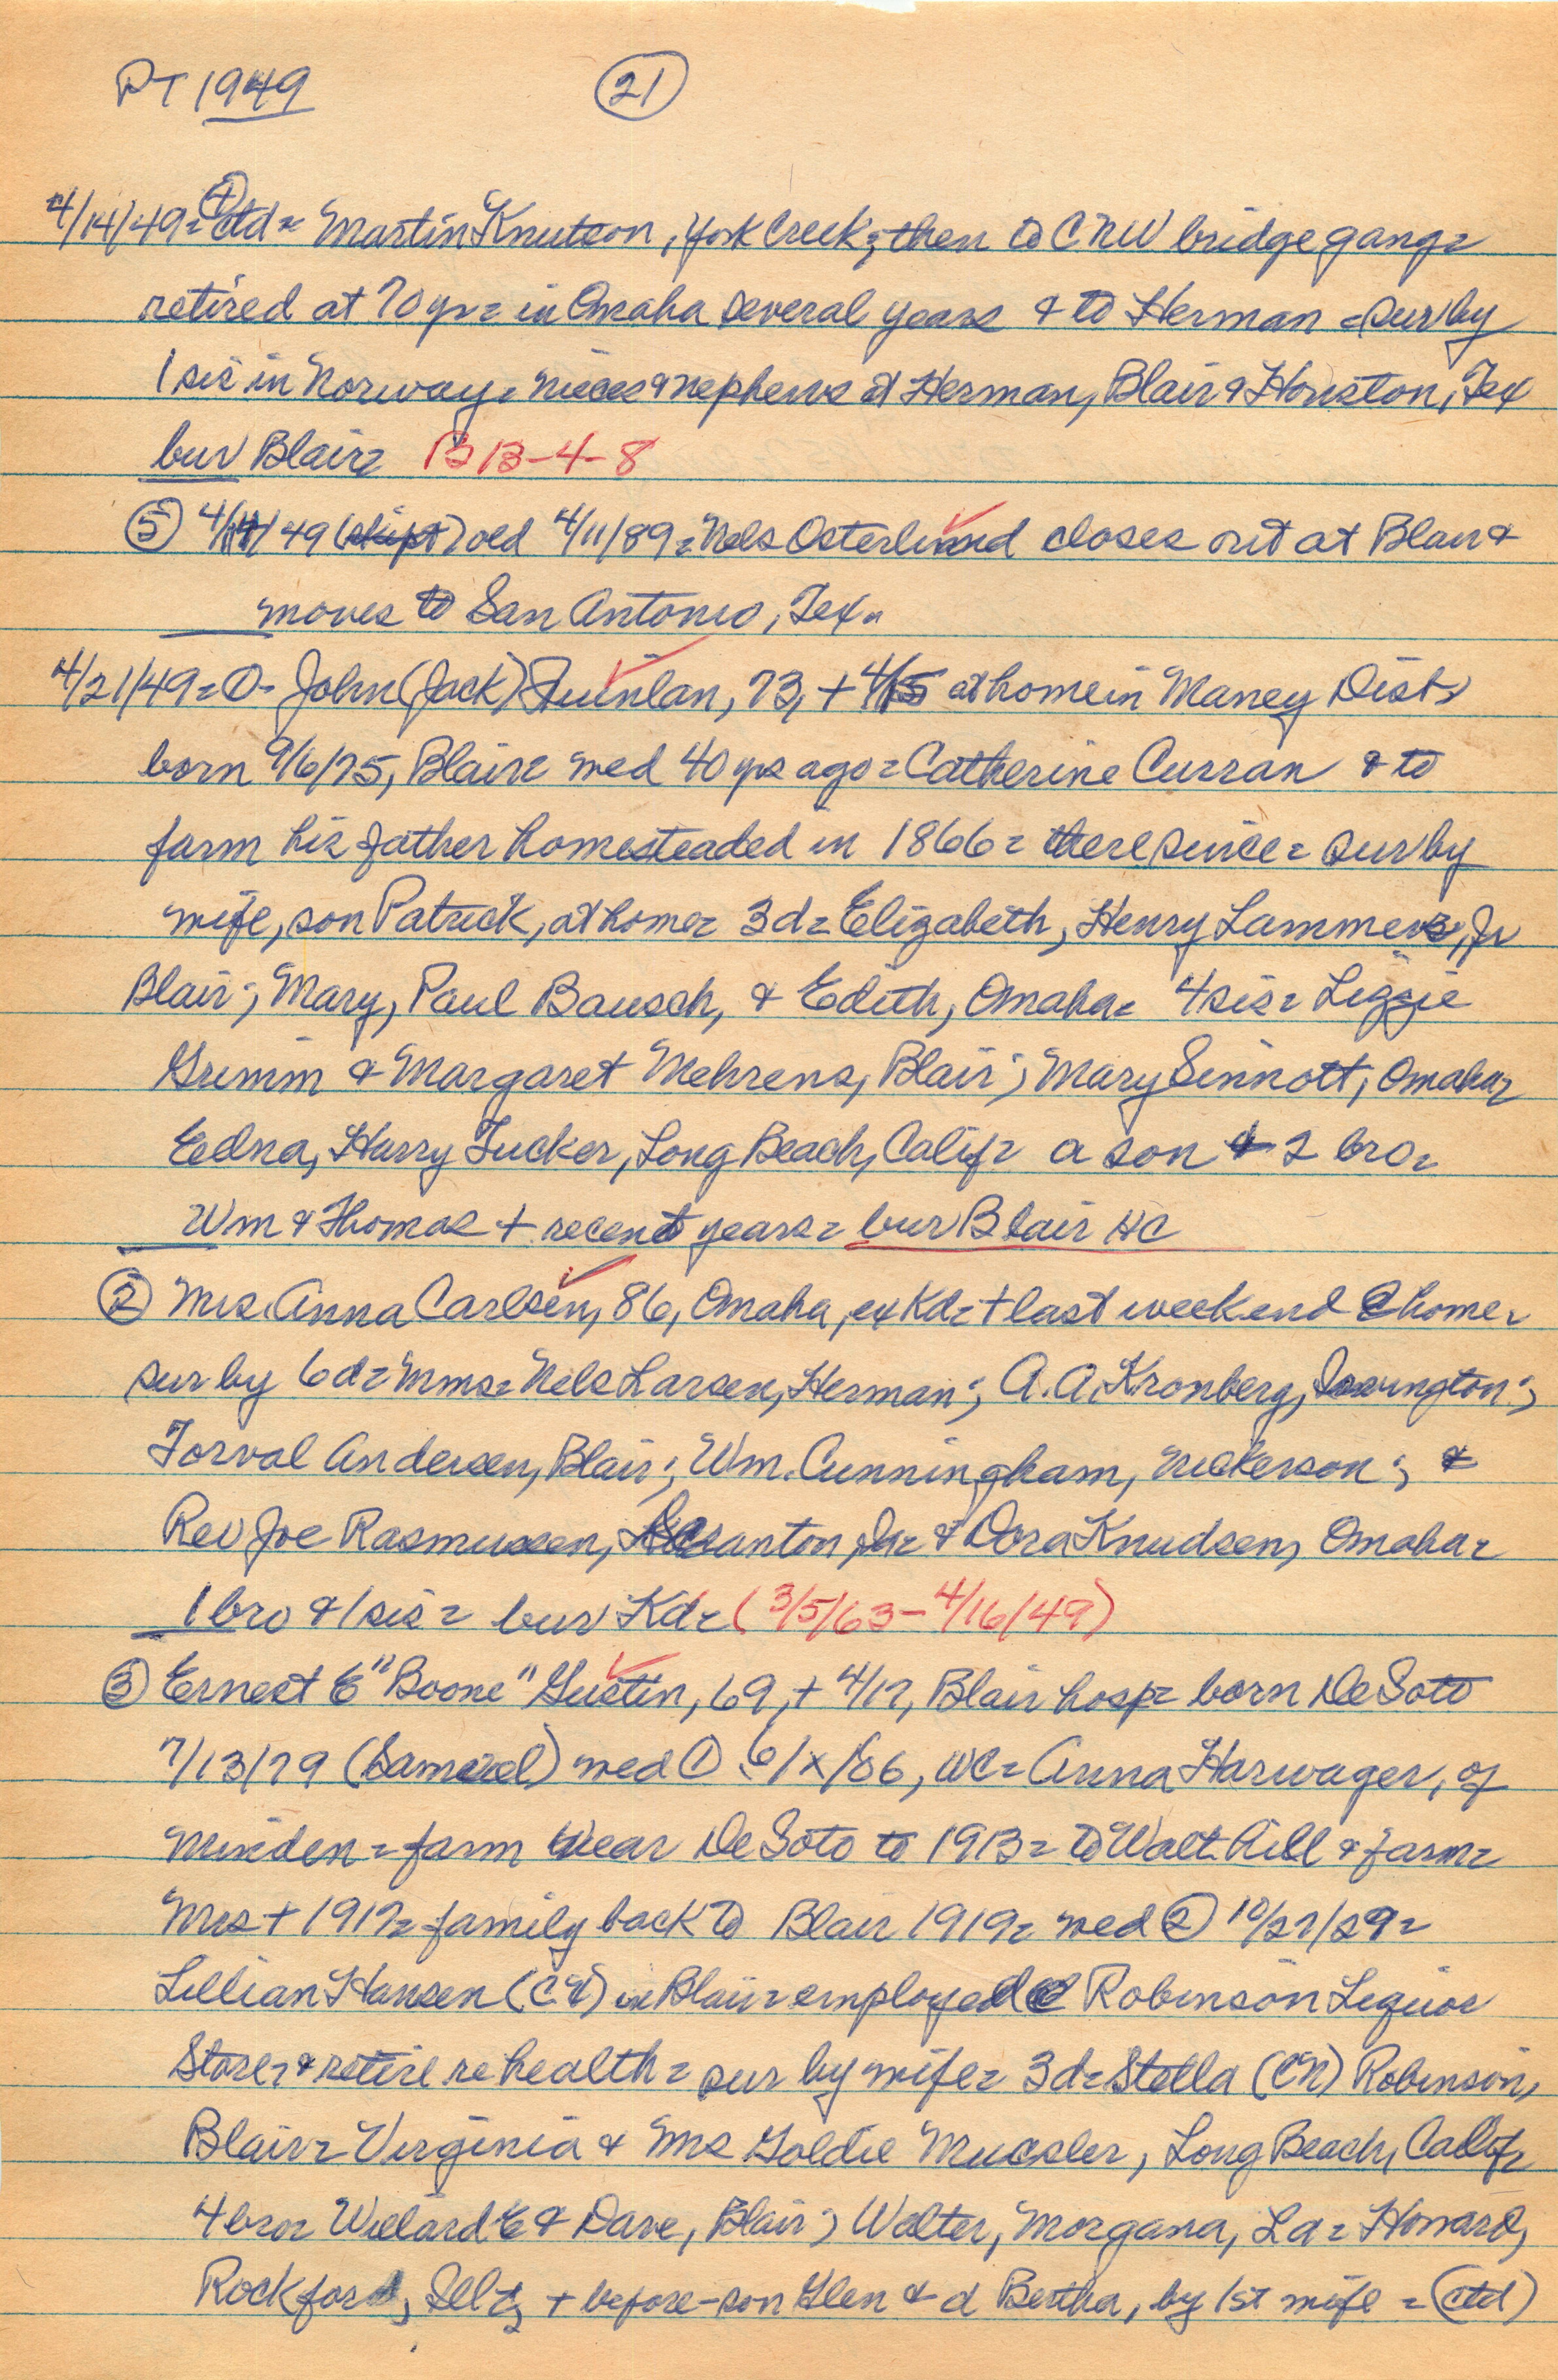 PT 1949 (21)
4/14/49= (4) ctd= Martin Knutson, York Creek; then to CNW bridge gang=
retired at 70 yrs= in Omaha several years & to Herman = sur by
1 sis in Norway= nieces & nephews at Herman, Blair & Houston, Tex
bur Blair= B 13-4-8
(5) 4/14/49 (skipt) old 4/11/89= Nels Osterlund closes out at Blair &
moves to San Antonio, Tex=
4/21/49= (1)- John (Jack) Quinlan, 73, + 4/15 at home in Maney Dist=
born 9/6/75, Blair= wed 40 yrs ago= Catherine Curran & to
farm his father homesteaded in 1866= there since= sur by
wife, son Patrick, at home= 3 d= Elizabeth, Henry Lammers, Jr
Blair; Mary, Paul Bausch, & Edith, Omaha= 4 sis= Lizzie
Grimm & Margaret Mehrens, Blair; Mary Sinnott, Omaha;
Edna, Harry Tucker, Long Beach, Calif= a son & 2 bro=
Wm & Thomas + recent years= bur Blair HC
(2) Mrs. Anna Carlsen, 86, Omaha, ex Kd= + last weekend @ home=
sur by 6 d= Mms= Nels Larsen, Herman; A. A. Kronberg, Irvington;
Torval Andersen, Blair; Wm. Cunningham, Nickerson; &
Rev Joe Rasmussen, Scranton, Ia= & Dora Knudsen, Omaha=
1 bro & 1 sis= bur Kd= (3/5/63-4/16/49)
(3) Ernest E "Boone" Gustin, 69, + 4/17, Blair hosp= born DeSoto
7/13/79 (Samuel) wed (1) 6/x/06, WC= Anna Harwager, of
Minden= farm near DeSoto to 1913= to Walt Hill & farm=
Mrs + 1917= family back to Blair 1919= wed (2) 10/27/29=
Lillian Hansen (C) in Blair= employed @ Robinson Liquor
Store, & retire re health= sur by wife= 3 d= Stella (Ch) Robinson,
Blair= Virginia & Mrs Goldie, Long Beach, Calif=
4 bro= Willard E & Dave, Blair; Walter, Morgana, La= Howard,
Rockford, Ill=, + before-son Glen & d Bertha, by 1st wife = (ctd)